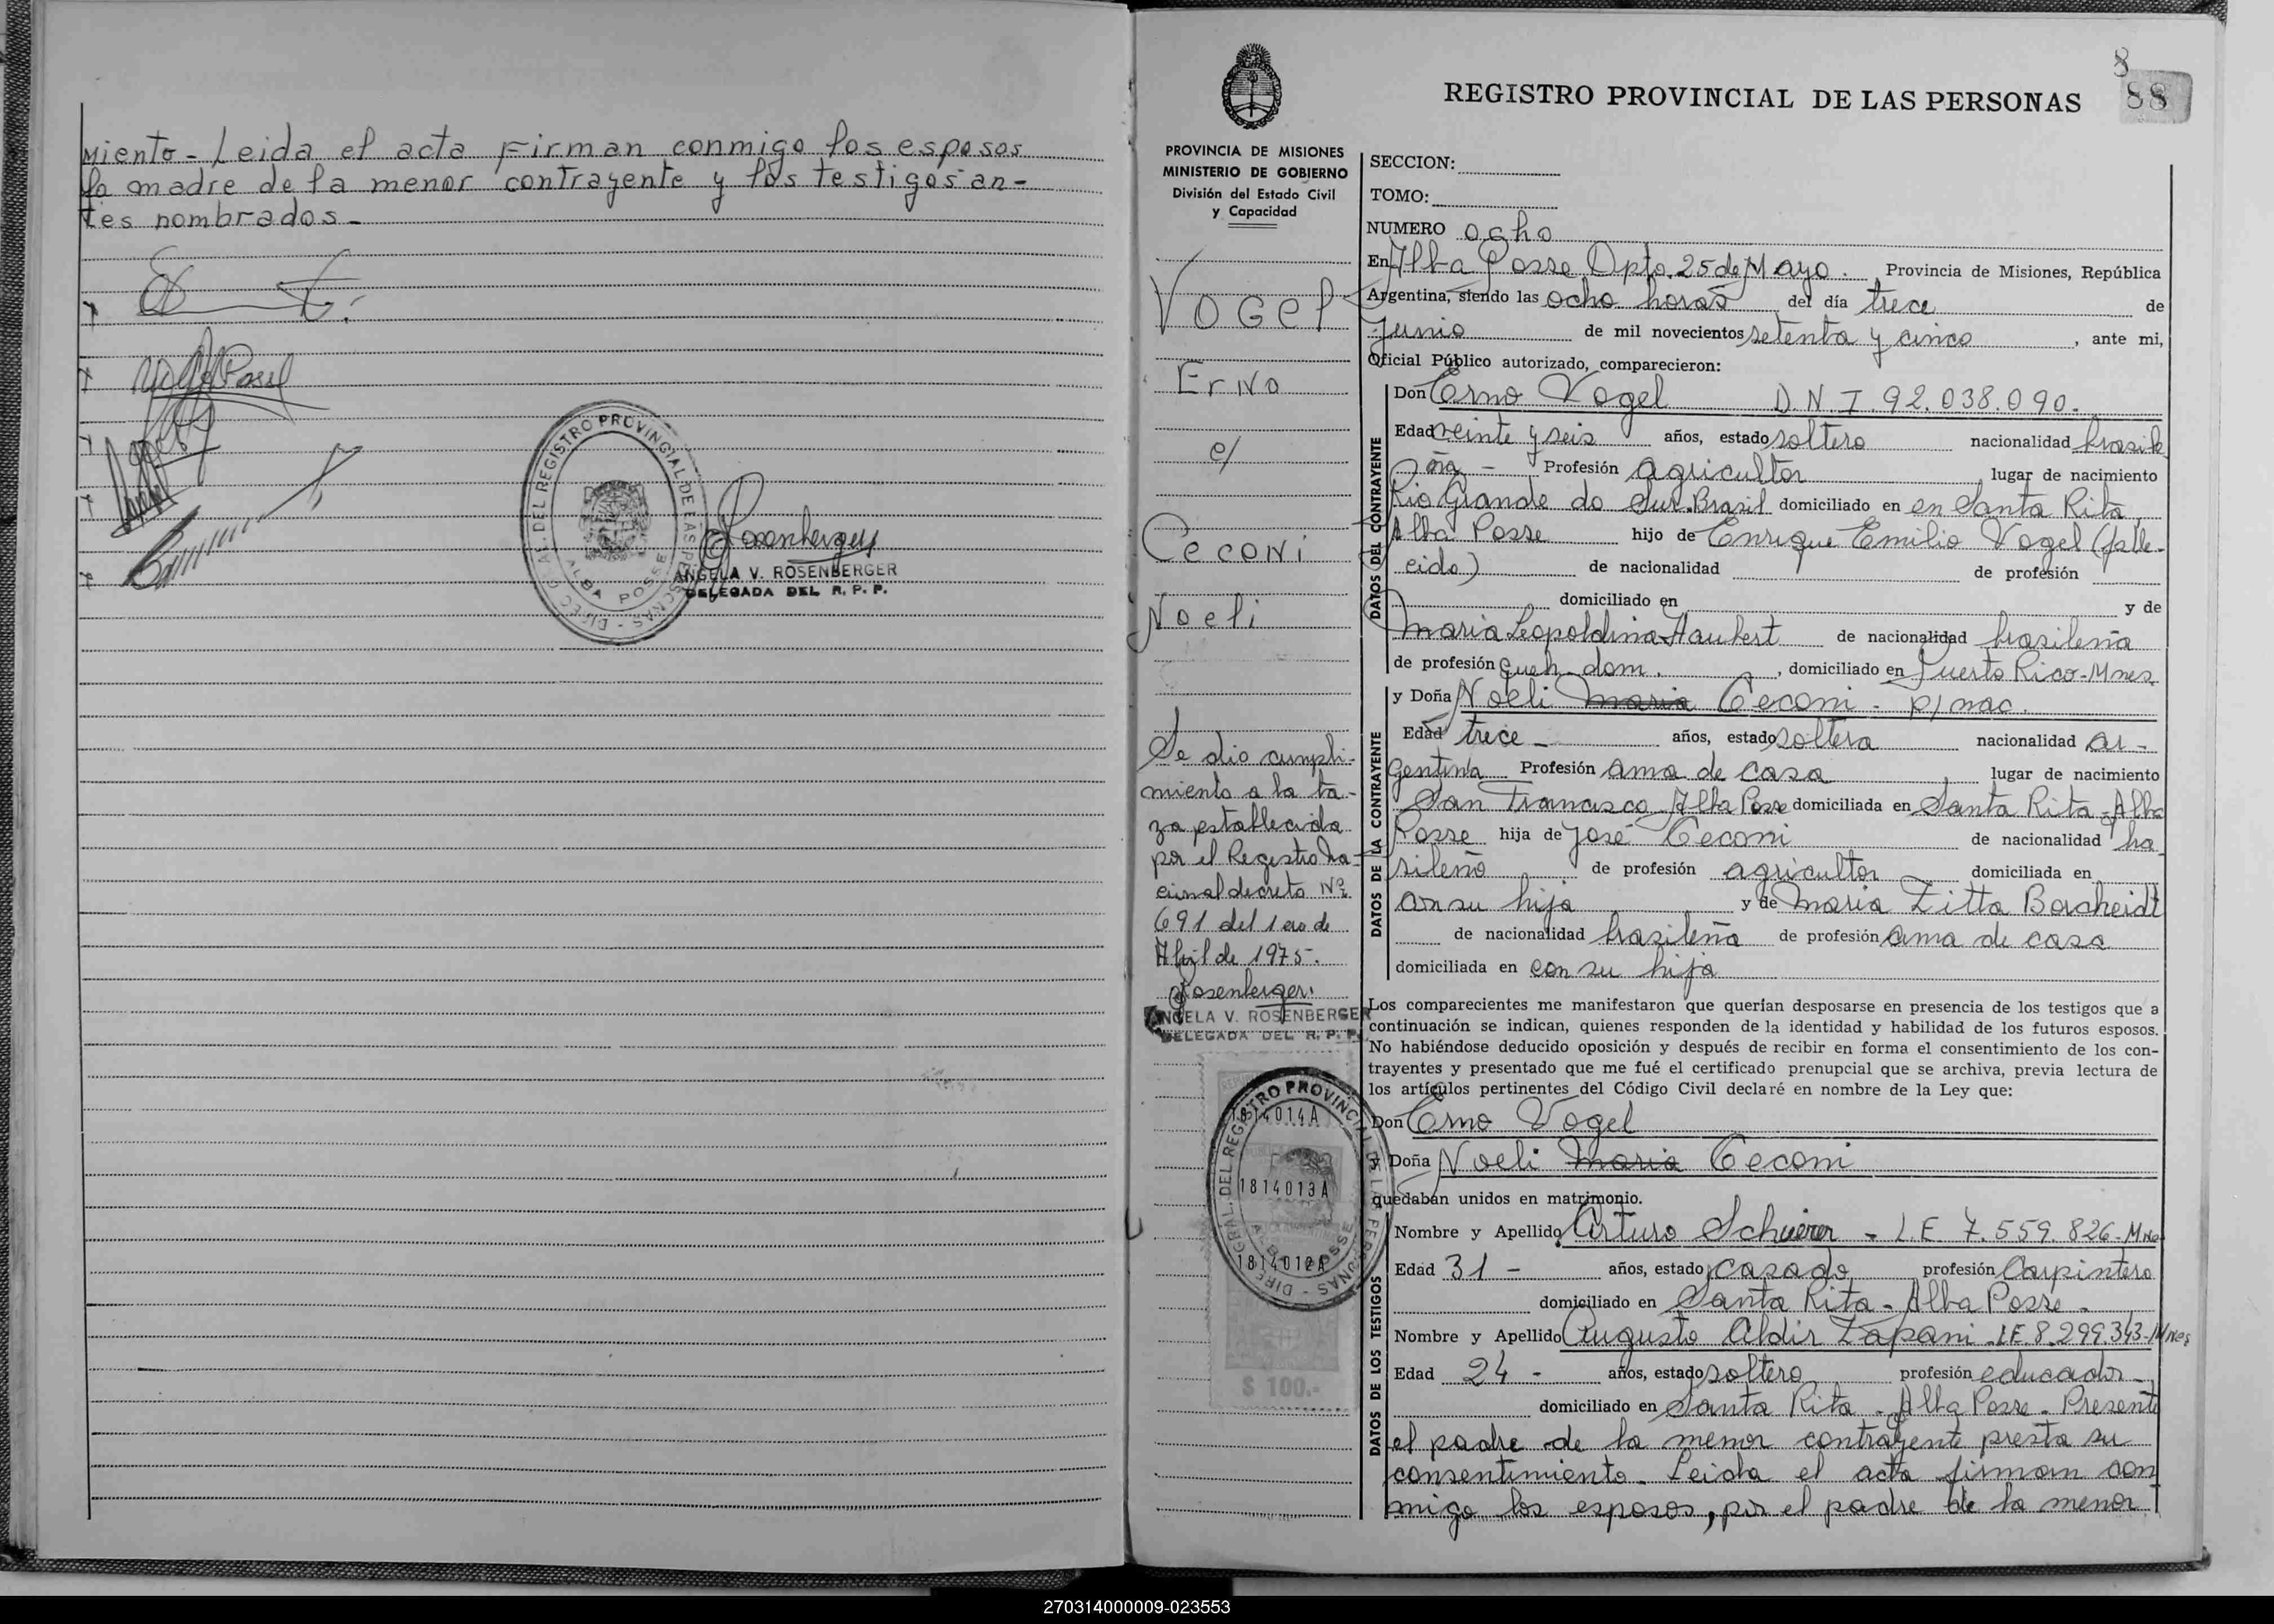 miento - Leida el acta firman conmigo los esposos
la madre de la menor contrayente y los testigos an-
tes nombrados -
DIREC. GRAL. DEL REGISTRO PROVINCIAL DE LAS PERSONAS -
ALBA POSSE
Rosenberger
ANGELA V. ROSENBERGER
DELEGADA DEL R. P. P.
8
88
REGISTRO PROVINCIAL DE LAS PERSONAS
PROVINCIA DE MISIONES
MINISTERIO DE GOBIERNO
División del Estado Civil
y Capacidad
Vogel
Erno
c/
Ceconi
Noeli
Se dio cumpli-
miento a la ta-
za establecida
por el Registro Na-
cional decreto Nº
691 del 1ero de
Abril de 1975.
Rosenberger.
ANGELA V. ROSENBERGER
DELEGADA DEL R. P. P.
1814014A
1814013A
1814012A
$ 100.-
SECCION:
TOMO:
NUMERO ocho
En Alba Posse Dpto. 25 de Mayo. Provincia de Misiones, República
Argentina, siendo las ocho horas del día trece de
Junio de mil novecientos setenta y cinco, ante mi,
Oficial Público autorizado, comparecieron:
DATOS DEL CONTRAYENTE
Don Erno Vogel D.N.I. 92.038.090.
Edad veinte y seis años, estado soltero nacionalidad brasile
ña - Profesión agricultor lugar de nacimiento
Rio Grande do Sur. Brasil domiciliado en en Santa Rita
Alba Posse hijo de Enrique Emilio Vogel (falle-
cido) de nacionalidad de profesión
domiciliado en y de
Maria Leopoldina Haubert de nacionalidad brasileña
de profesión queh. dom., domiciliado en Puerto Rico-Mnes.
DATOS DE LA CONTRAYENTE
y Doña Noeli Maria Ceconi - p/ nac.
Edad trece - años, estado soltera nacionalidad ar-
gentina Profesión ama de casa, lugar de nacimiento
San Francisco Alba Posse domiciliada en Santa Rita - Alba
Posse hija de José Ceconi de nacionalidad bra
sileño de profesión agricultor domiciliada en
con su hija y de Maria Zitta Borcheidt
de nacionalidad brasileña de profesión ama de casa
domiciliada en con su hija
Los comparecientes me manifestaron que querían desposarse en presencia de los testigos que a
continuación se indican, quienes responden de la identidad y habilidad de los futuros esposos.
No habiéndose deducido oposición y después de recibir en forma el consentimiento de los con-
trayentes y presentado que me fué el certificado prenupcial que se archiva, previa lectura de
los artículos pertinentes del Código Civil declaré en nombre de la Ley que:
Don Erno Vogel
y Doña Noeli Maria Ceconi
quedaban unidos en matrimonio.
DATOS DE LOS TESTIGOS
Nombre y Apellido Arturo - L.E. 7.559.826-Mnes
Edad 31 - años, estado casado profesión Carpintero
domiciliado en Santa Rita - Alba Posse -
Nombre y Apellido Augusto Aldir Zapani - LE. 8.299.343-Mnes
Edad 24 - años, estado soltero profesión educador -
domiciliado en Santa Rita - Alba Posse - Presente
el padre de la menor contrayente presta su
consentimiento - Leida el acta firman con
migo los esposos, por el padre de la menor
270314000009-023553